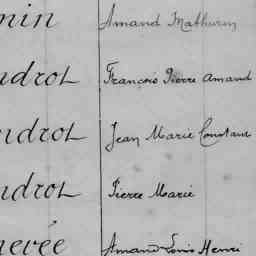 min Amand Mathurin
ndrot François Pierre Amand
ndrot Jean Marie Constant
ndrot Pierre Marie
nevée Amand Louis Henri